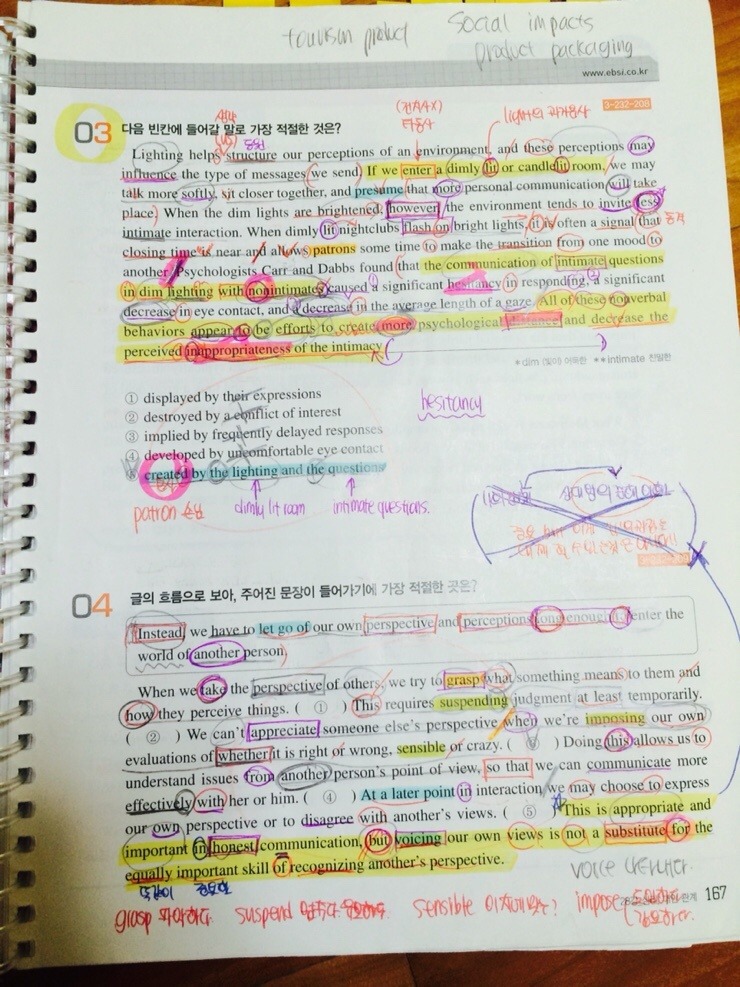 tourism product social impacts
product packaging
www.ebsi.co.kr
3-232-208
(전치사X)
타동사
light의 과거분사
03 다음 빈칸에 들어갈 말로 가장 적절한 것은?
Lighting helps structure our perceptions of an environment, and these perceptions may
influence the type of messages we send. If we enter a dimly lit or candlelit room, we may
talk more softly, sit closer together, and presume that more personal communication will take
place. When the dim lights are brightened, however, the environment tends to invite less
intimate interaction. When dimly lit nightclubs flash on bright lights, it is often a signal that
closing time is near and allows patrons some time to make the transition from one mood to
another. Psychologists Carr and Dabbs found that the communication of intimate questions
in dim lighting with nonintimates caused a significant hesitancy in responding, a significant
decrease in eye contact, and a decrease in the average length of a gaze. All of these nonverbal
behaviors appear to be efforts to create more psychological distance and decrease the
perceived inappropriateness of the intimacy
*dim (빛이) 어둑한 **intimate 친밀한
① displayed by their expressions
② destroyed by a conflict of interest
③ implied by frequently delayed responses
④ developed by uncomfortable eye contact
created by the lighting and the questions
hesitancy
patron 손님 dimly lit room intimate questions.
04 글의 흐름으로 보아, 주어진 문장이 들어가기에 가장 적절한 곳은?
Instead, we have to let go of our own perspective and perceptions long enough to enter the
world of another person.
When we take the perspective of others, we try to grasp what something means to them and
how they perceive things. ( ① ) This requires suspending judgment at least temporarily.
( ② ) We can't appreciate someone else's perspective when we're imposing our own
evaluations of whether it is right or wrong, sensible or crazy. ( ③ ) Doing this allows us to
understand issues from another person's point of view, so that we can communicate more
effectively with her or him. ( ④ ) At a later point in interaction, we may choose to express
our own perspective or to disagree with another's views. ( ⑤ ) This is appropriate and
important in honest communication, but voicing our own views is not a substitute for the
equally important skill of recognizing another's perspective.
똑같이 중요한
voice 나타내다.
grasp 파악하다. suspend sensible impose
강요하다.
167